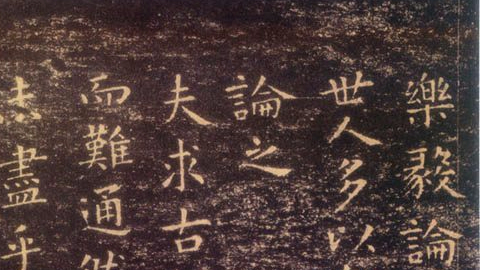 樂毅論
世人多以
論之
夫求古
而難通然
未盡乎